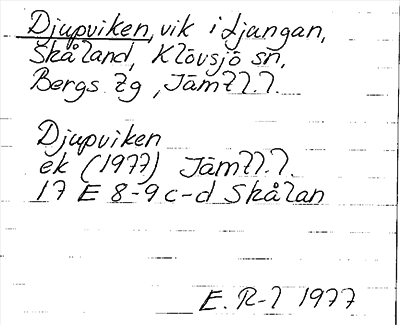 Djupviken, vik i Ljungan,
Skåland, Klövsjö sn,
Bergs tg, Jämtl.l.
Djupviken
ek (1977) Jämtl.l.
17 E 8-9 c-d Skålan
E. R-l 1977